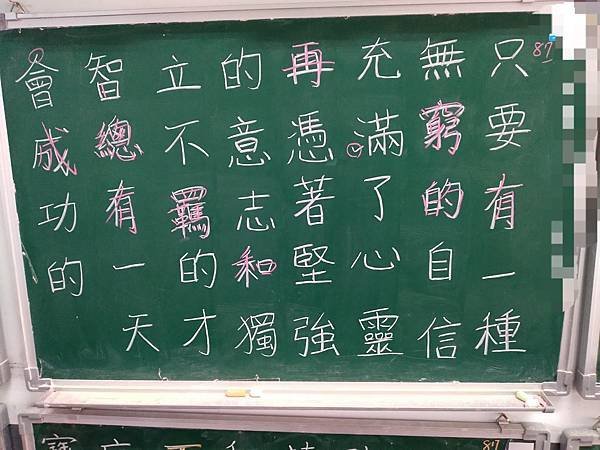 87
只要有一種
無窮的自信
充滿了心靈
再憑著堅強
的意志和獨
立不羈的才
智總有一天
會成功的